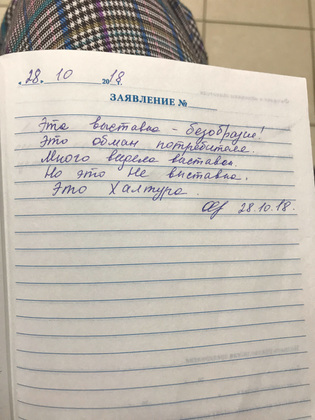 28. 10 2018
ЗАЯВЛЕНИЕ №
Эта выставка - безобразие!
Это обман потребителе.
Много видела выставки.
Но это Не выставка.
Это Халтура.
28.10.18.